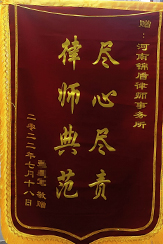 赠：河南锦盾律师事务所
尽心尽责
律师典范
敬赠
二零二二年七月十八日